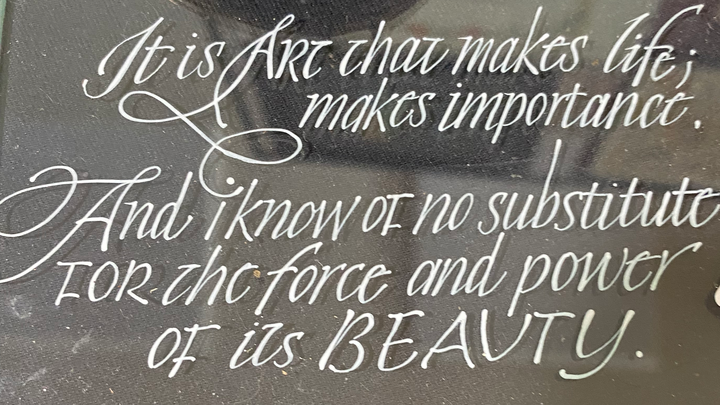 It is ART that makes life;
makes importance.
And i know of no substitute
FOR the force and power
OF its BEAUTY.